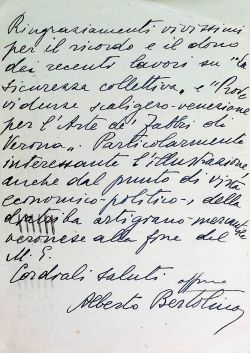 Ringraziamenti vivissimi
per il ricordo e il dono
dei recenti lavori su "la
sicurezza collettiva" e "Prov
videnze scaligero-veneziane
per l'Arte de' Fabbri di
Verona". Particolarmente
interessante l'illustrazione
anche dal punto di vista
economico-politico della
artigiano-mercante
veronese alla fine del
M. E.
Cordiali saluti
Alberto Bertolino